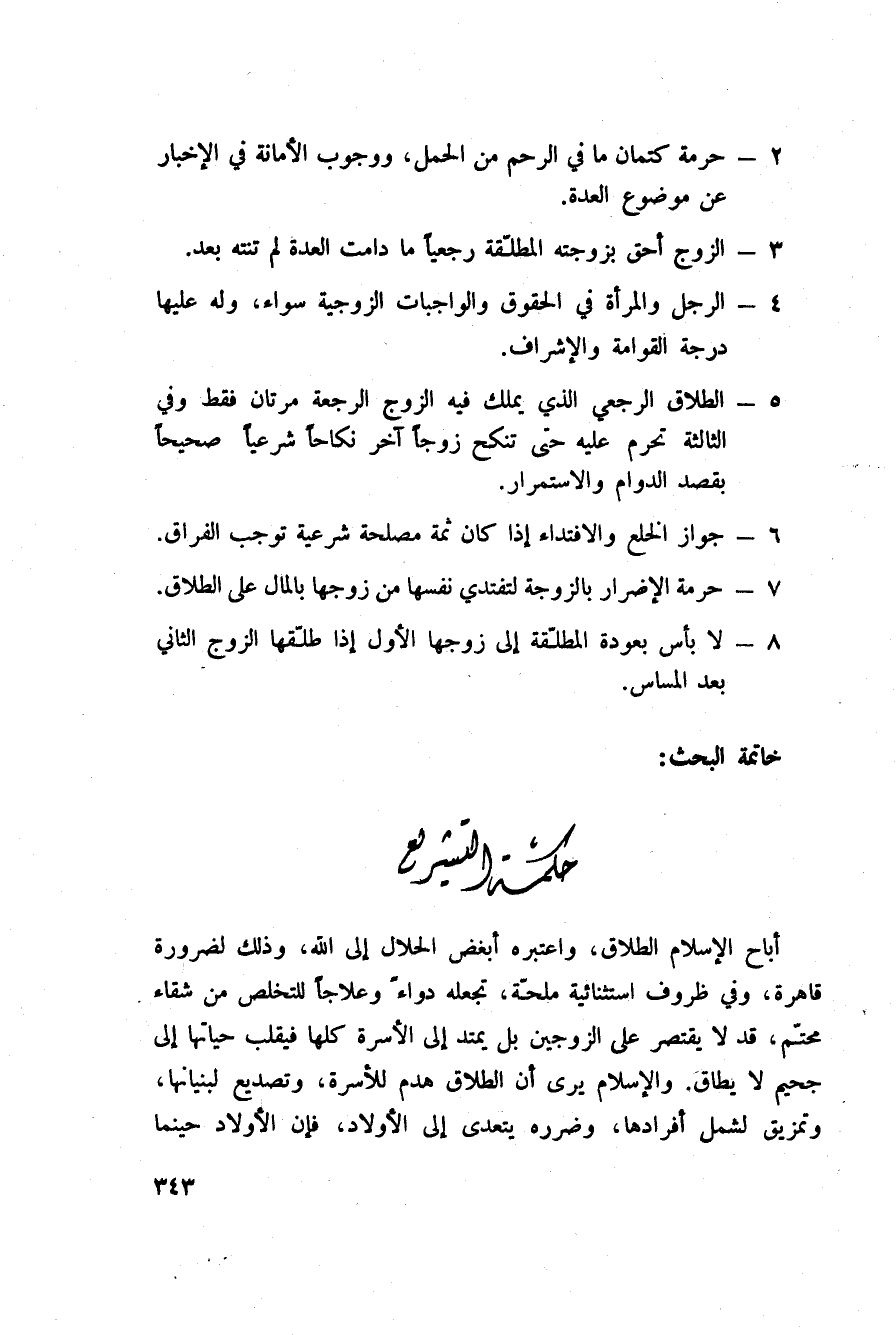 ٢ — حرمة كتمان ما في الرحم من الحمل، ووجوب الأمانة في الإخبار
عن موضوع العدة.
٣ — الزوج أحق بزوجته المطلّقة رجعياً ما دامت العدة لم تنته بعد.
٤ — الرجل والمرأة في الحقوق والواجبات الزوجية سواء، وله عليها
درجة القوامة والإشراف.
٥ — الطلاق الرجعي الذي يملك فيه الزوج الرجعة مرتان فقط وفي
الثالثة تحرم عليه حتى تنكح زوجاً آخر نكاحاً شرعياً صحيحاً
بقصد الدوام والاستمرار.
٦ — جواز الخلع والافتداء إذا كان ثمة مصلحة شرعية توجب الفراق.
٧ — حرمة الإضرار بالزوجة لتفتدي نفسها من زوجها بالمال على الطلاق.
٨ — لا بأس بعودة المطلّقة إلى زوجها الأول إذا طلّقها الزوج الثاني
بعد المساس.
خاتمة البحث:
حكمة التشريع
أباح الإسلام الطلاق، واعتبره أبغض الحلال إلى الله، وذلك لضرورة
قاهرة، وفي ظروف استثنائية ملحّة، تجعله دواءً وعلاجاً للتخلص من شقاء
محتّم، قد لا يقتصر على الزوجين بل يمتد إلى الأسرة كلها فيقلب حياتها إلى
جحيم لا يطاق. والإسلام يرى أن الطلاق هدم للأسرة، وتصديع لبنيانها،
وتمزيق لشمل أفرادها، وضرره يتعدى إلى الأولاد، فإن الأولاد حينما
٣٤٣